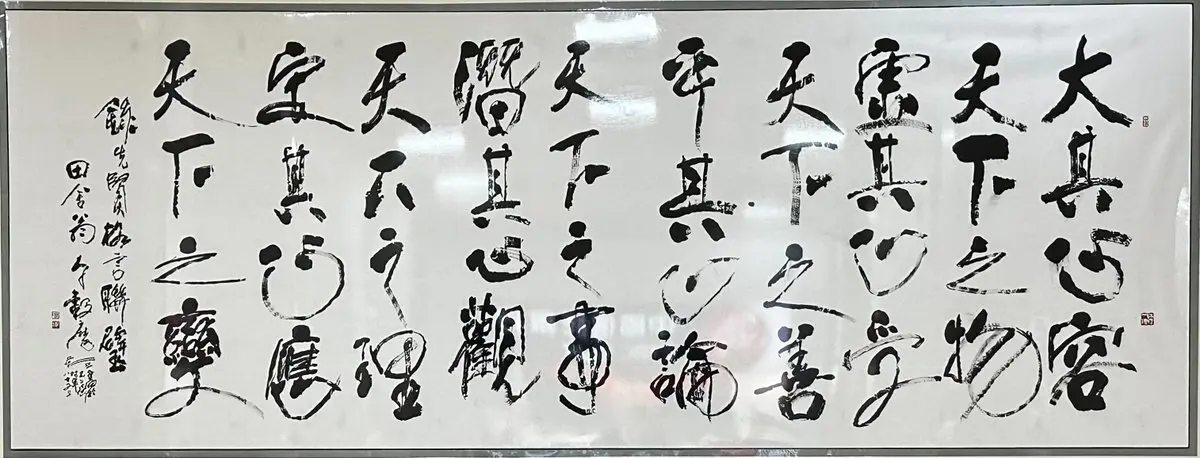 大其心容
天下之物
虛其心受
天下之善
平其心論
天下之事
潛其心觀
天下之理
定其心應
天下之變
錄先賢格言聯璧
田舍翁